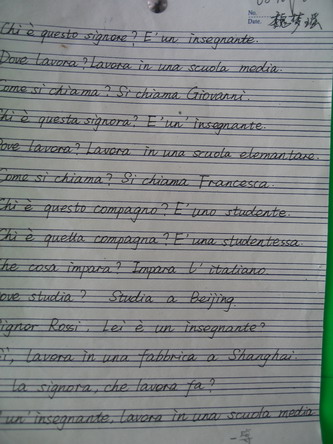 No.
Date.
Chi è questo signore? E' un insegnante.
Dove lavora? Lavora in una scuola media.
Come si chiama? Si chiama Giovanni.
Chi è questa signora? E' un' insegnante.
Dove lavora? Lavora in una scuola elemantare.
Come si chiama? Si chiama Francesca.
Chi è questo compagno? E' uno studente.
Chi è quella compagna? E' una studentessa.
he cosa impara? Impara l' italiano.
ove studia? Studia a Beijing.
ignor Rossi, Lei è un insegnante?
ì, lavora in una fabbrica a Shanghai.
la signora, che lavora fa?
' un' insegnante, lavora in una scuola media